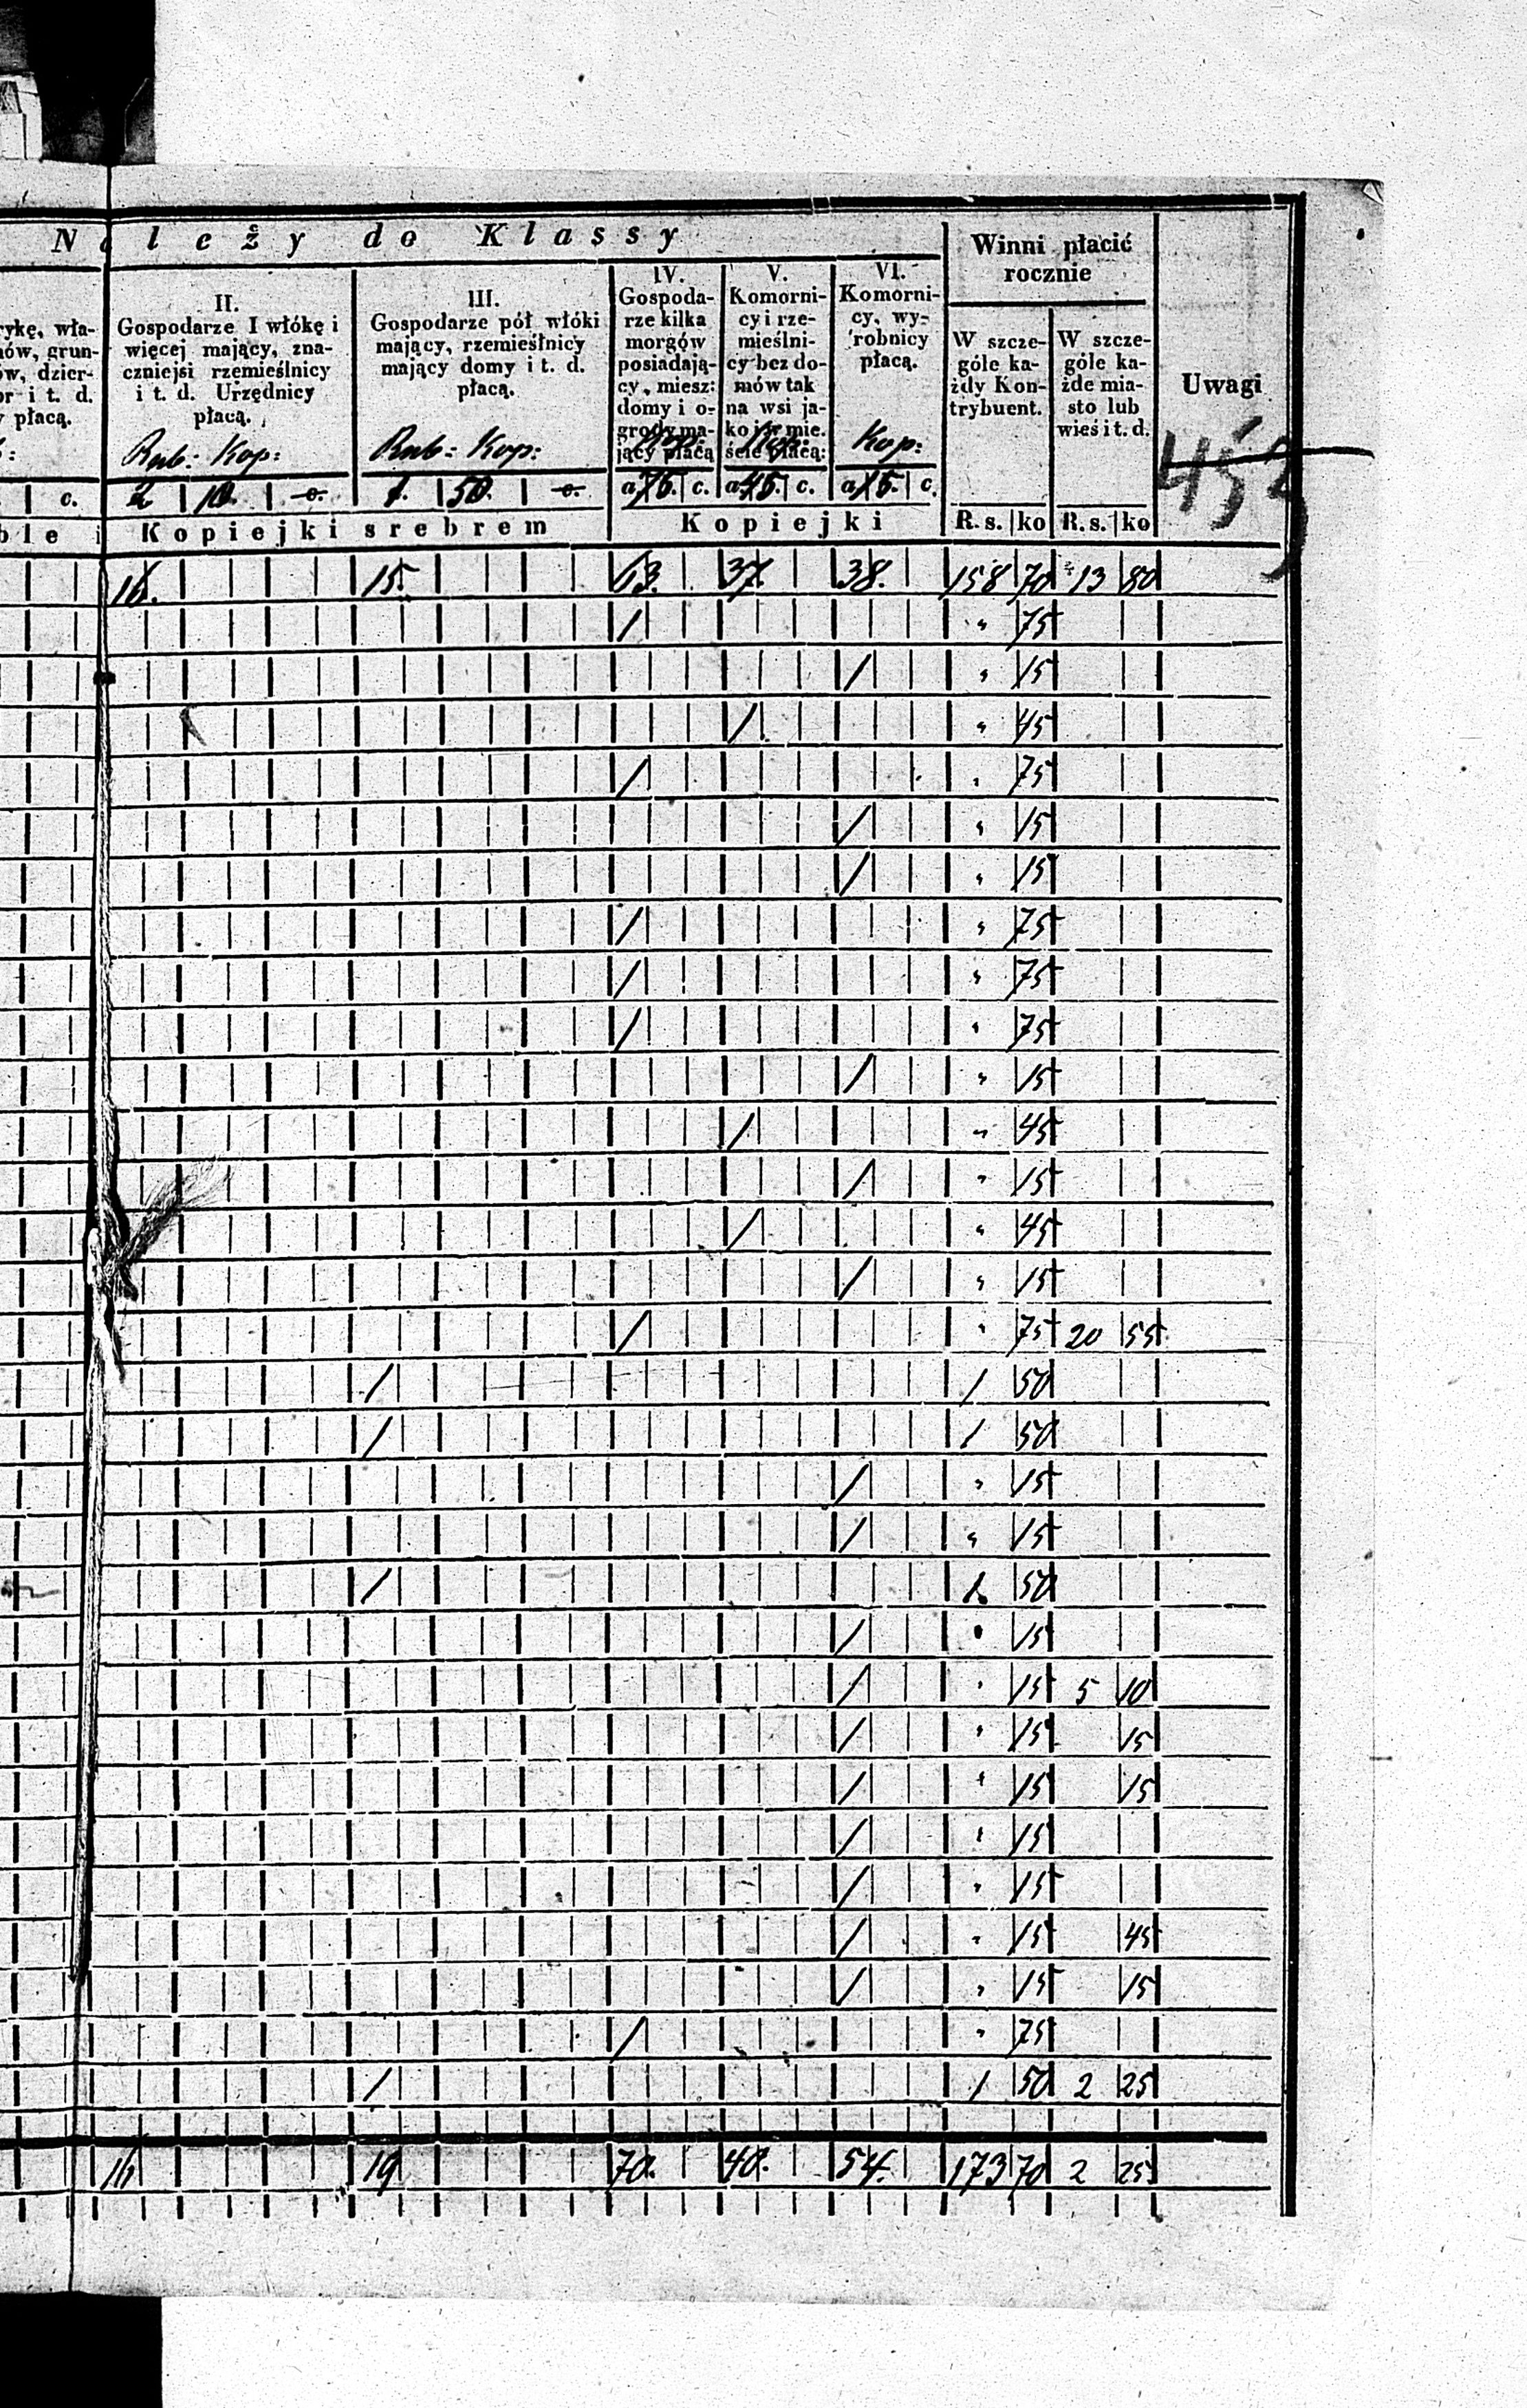 Należy do Klassy
Winni płacić
rocznie
rykę, wła-
mów, grun-
ów, dzier-
or i t. d.
y płacą.
c.
II.
Gospodarze I włókę i
więcej mający, zna-
czniejsi rzemieślnicy
i t. d. Urzędnicy
płacą.
Rub: Kop:
2 10. c.
III.
Gospodarze pół włóki
mający, rzemieślnicy
mający domy i t. d.
płacą.
Rub: Kop:
1. 50. c.
IV.
Gospoda-
rze kilka
morgów
posiadają-
cy, miesz:
domy i o-
grody ma-
jący płacą
Kop:
a 75. c.
V.
Komorni-
cy i rze-
mieślni-
cy bez do-
mów tak
na wsi ja-
ko i w mie.
ście płacą:
Kop:
a 45. c.
VI.
Komorni-
cy, wy-
robnicy
płacą.
Kop:
a 15. c.
W szcze-
góle ka-
żdy Kon-
trybuent.
W szcze-
góle ka-
żde mia-
sto lub
wieś i t. d.
Uwagi
453
ble i Kopiejki srebrem
Kopiejki
R. s. ko R. s. ko
16. 15. 63. 37. 38. 158 70 13 80
/ " 75
/ " 15
/ " 45
/ " 75
/ " 15
/ " 15
/ " 75
/ " 75
/ " 75
/ " 15
/ " 45
/ " 15
/ " 45
/ " 15
/ " 75 20 55
/ 1 50
/ 1 50
/ " 15
/ " 15
/ 1 50
/ " 15
/ " 15 5 10
/ " 15 15
/ " 15 15
/ " 15
/ " 15
/ " 15 45
/ " 15 15
/ " 75
/ 1 50 2 25
16 19 70. 40. 54. 173 70 2 25